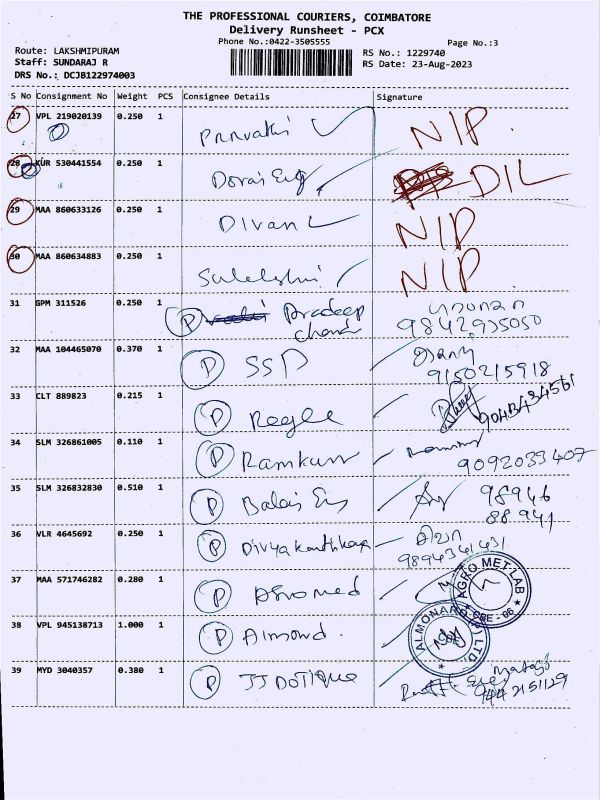 THE PROFESSIONAL COURIERS, COIMBATORE
Delivery Runsheet - PCX
Phone No.:0422-3505555
Page No.:3
Route: LAKSHMIPURAM
RS No.: 1229740
Staff: SUNDARAJ R
RS Date: 23-Aug-2023
DRS No.: DCJB122974003
S No Consignment No Weight PCS Consignee Details Signature
27 VPL 219020139 0.250 1 NIP.
28 KUR 530441554 0.250 1 Dorai Eng DIL
29 MAA 860633126 0.250 1 Divan L NIP
30 MAA 860634883 0.250 1 NIP
31 GPM 311526 0.250 1 P Pradeep
chandr 9842935050
32 MAA 104465070 0.370 1 P SSD
9150215918
33 CLT 889823 0.215 1 P
9043434561
34 SLM 326861005 0.110 1 P Ramkum
9092033407
35 SLM 326832830 0.510 1 P Balaji Eng 98946
88941
36 VLR 4645692 0.250 1 P
9894341431
37 MAA 571746282 0.280 1 P Agromed
AGRO MET LAB
CBE - 06
38 VPL 945138713 1.000 1 P Almond.
39 MYD 3040357 0.380 1 P JJ
9442151129